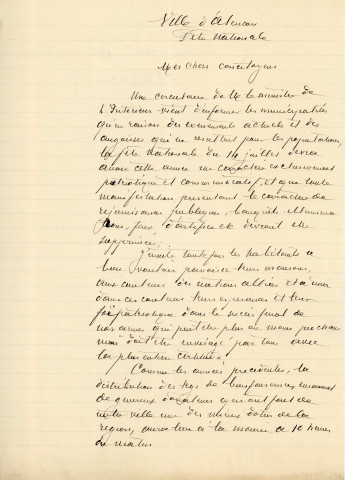 Ville d'Alençon
Fête Nationale
Mes Chers concitoyens
Une circulaire de M. le ministre de
l'Intérieur vient d'informer les municipalités
qu'en raison des événements actuels et des
angoisses qui en résultent pour les populations,
la fête Nationale du 14 juillet devra
avoir cette année un caractère exclusivement
patriotique et commémoratif, et que toute
manifestation présentant le caractère de
réjouissances publiques, banquets
feux d'artifice etc devront être
supprimés.
J'invite tous les habitants à
bien vouloir pavoiser leurs maisons,
aux couleurs des nations alliées
dans ces couleurs leurs espérances et leur
foi patriotique dans le succès final de
nos armes qui peut être plus ou moins prochain
mais doit être envisagé par tous avec
la plus entière certitude.
Comme les années précédentes, la
distribution des lots de bienfaisance émanant
de généreux donateurs qui ont fait de
notre ville une des mieux dotées de la
région, aura lieu à la mairie à 10 heures
du matin